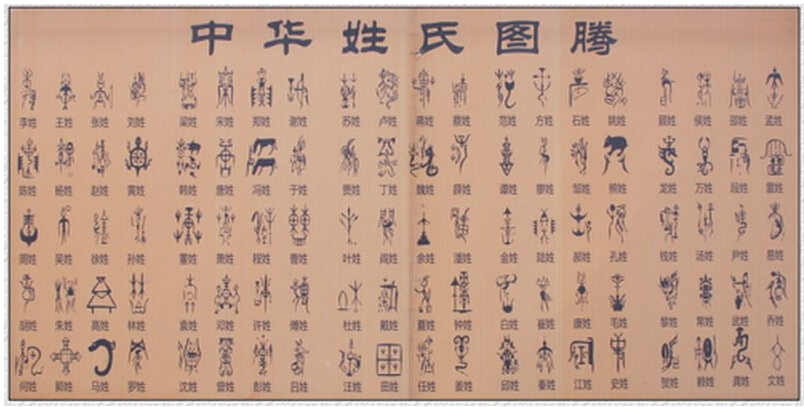 中华姓氏图腾
李姓 王姓 张姓 刘姓 梁姓 宋姓 郑姓 谢姓 苏姓 卢姓 蒋姓 蔡姓 范姓 方姓 石姓 姚姓 顾姓 侯姓 邵姓 孟姓
陈姓 杨姓 赵姓 黄姓 韩姓 唐姓 冯姓 于姓 贾姓 丁姓 魏姓 薛姓 谭姓 廖姓 邹姓 熊姓 龙姓 万姓 段姓 雷姓
周姓 吴姓 徐姓 孙姓 董姓 萧姓 程姓 曹姓 叶姓 阎姓 余姓 潘姓 金姓 陆姓 郝姓 孔姓 钱姓 汤姓 尹姓
胡姓 朱姓 高姓 林姓 袁姓 邓姓 许姓 傅姓 杜姓 戴姓 夏姓 钟姓 白姓 崔姓 康姓 毛姓 黎姓 常姓 武姓 乔姓
何姓 郭姓 马姓 罗姓 沈姓 曾姓 彭姓 吕姓 汪姓 田姓 任姓 姜姓 邱姓 秦姓 江姓 史姓 贺姓 赖姓 龚姓 文姓